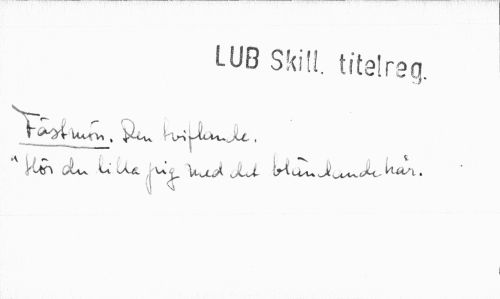 LUB Skill. titelreg.
Fästmön. Den tviflande.
"Hör du lilla pig med det bländende hår.